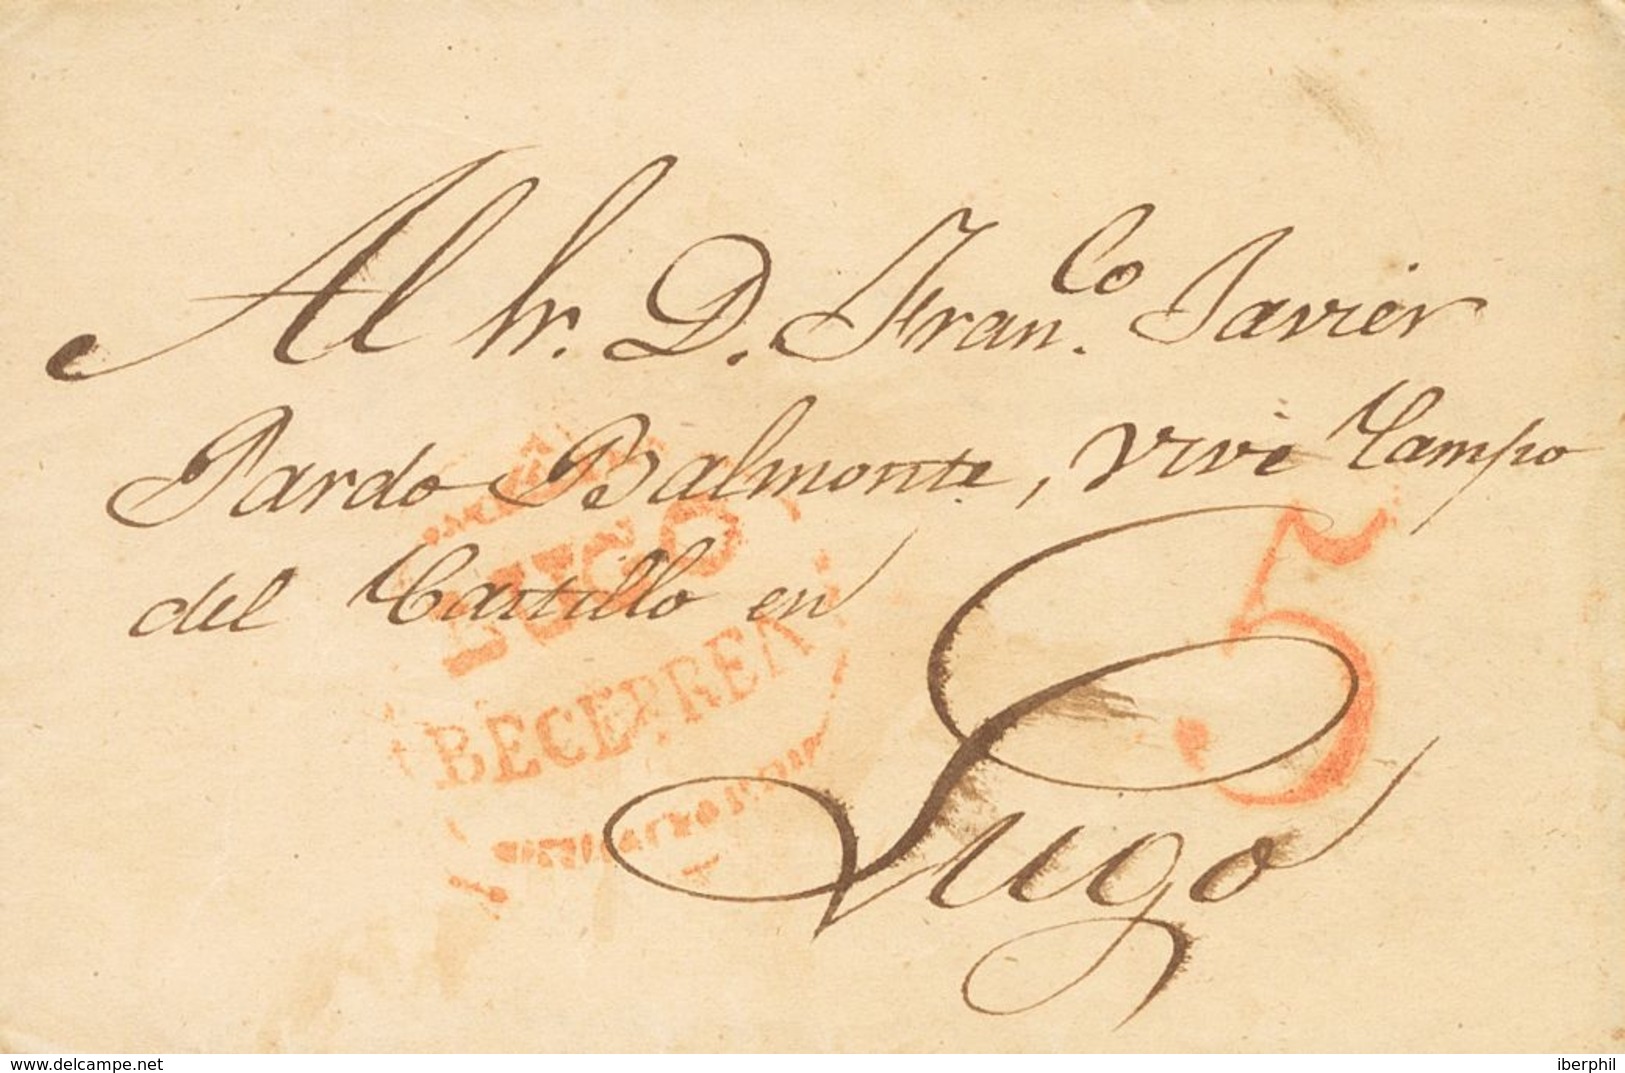 Al Sr. D. Fran.co Javier
Pardo Balmonte, vive Campo
del Castillo en
Lugo
5
LUGO
BECERREA
www.delcampe.net
iberphil